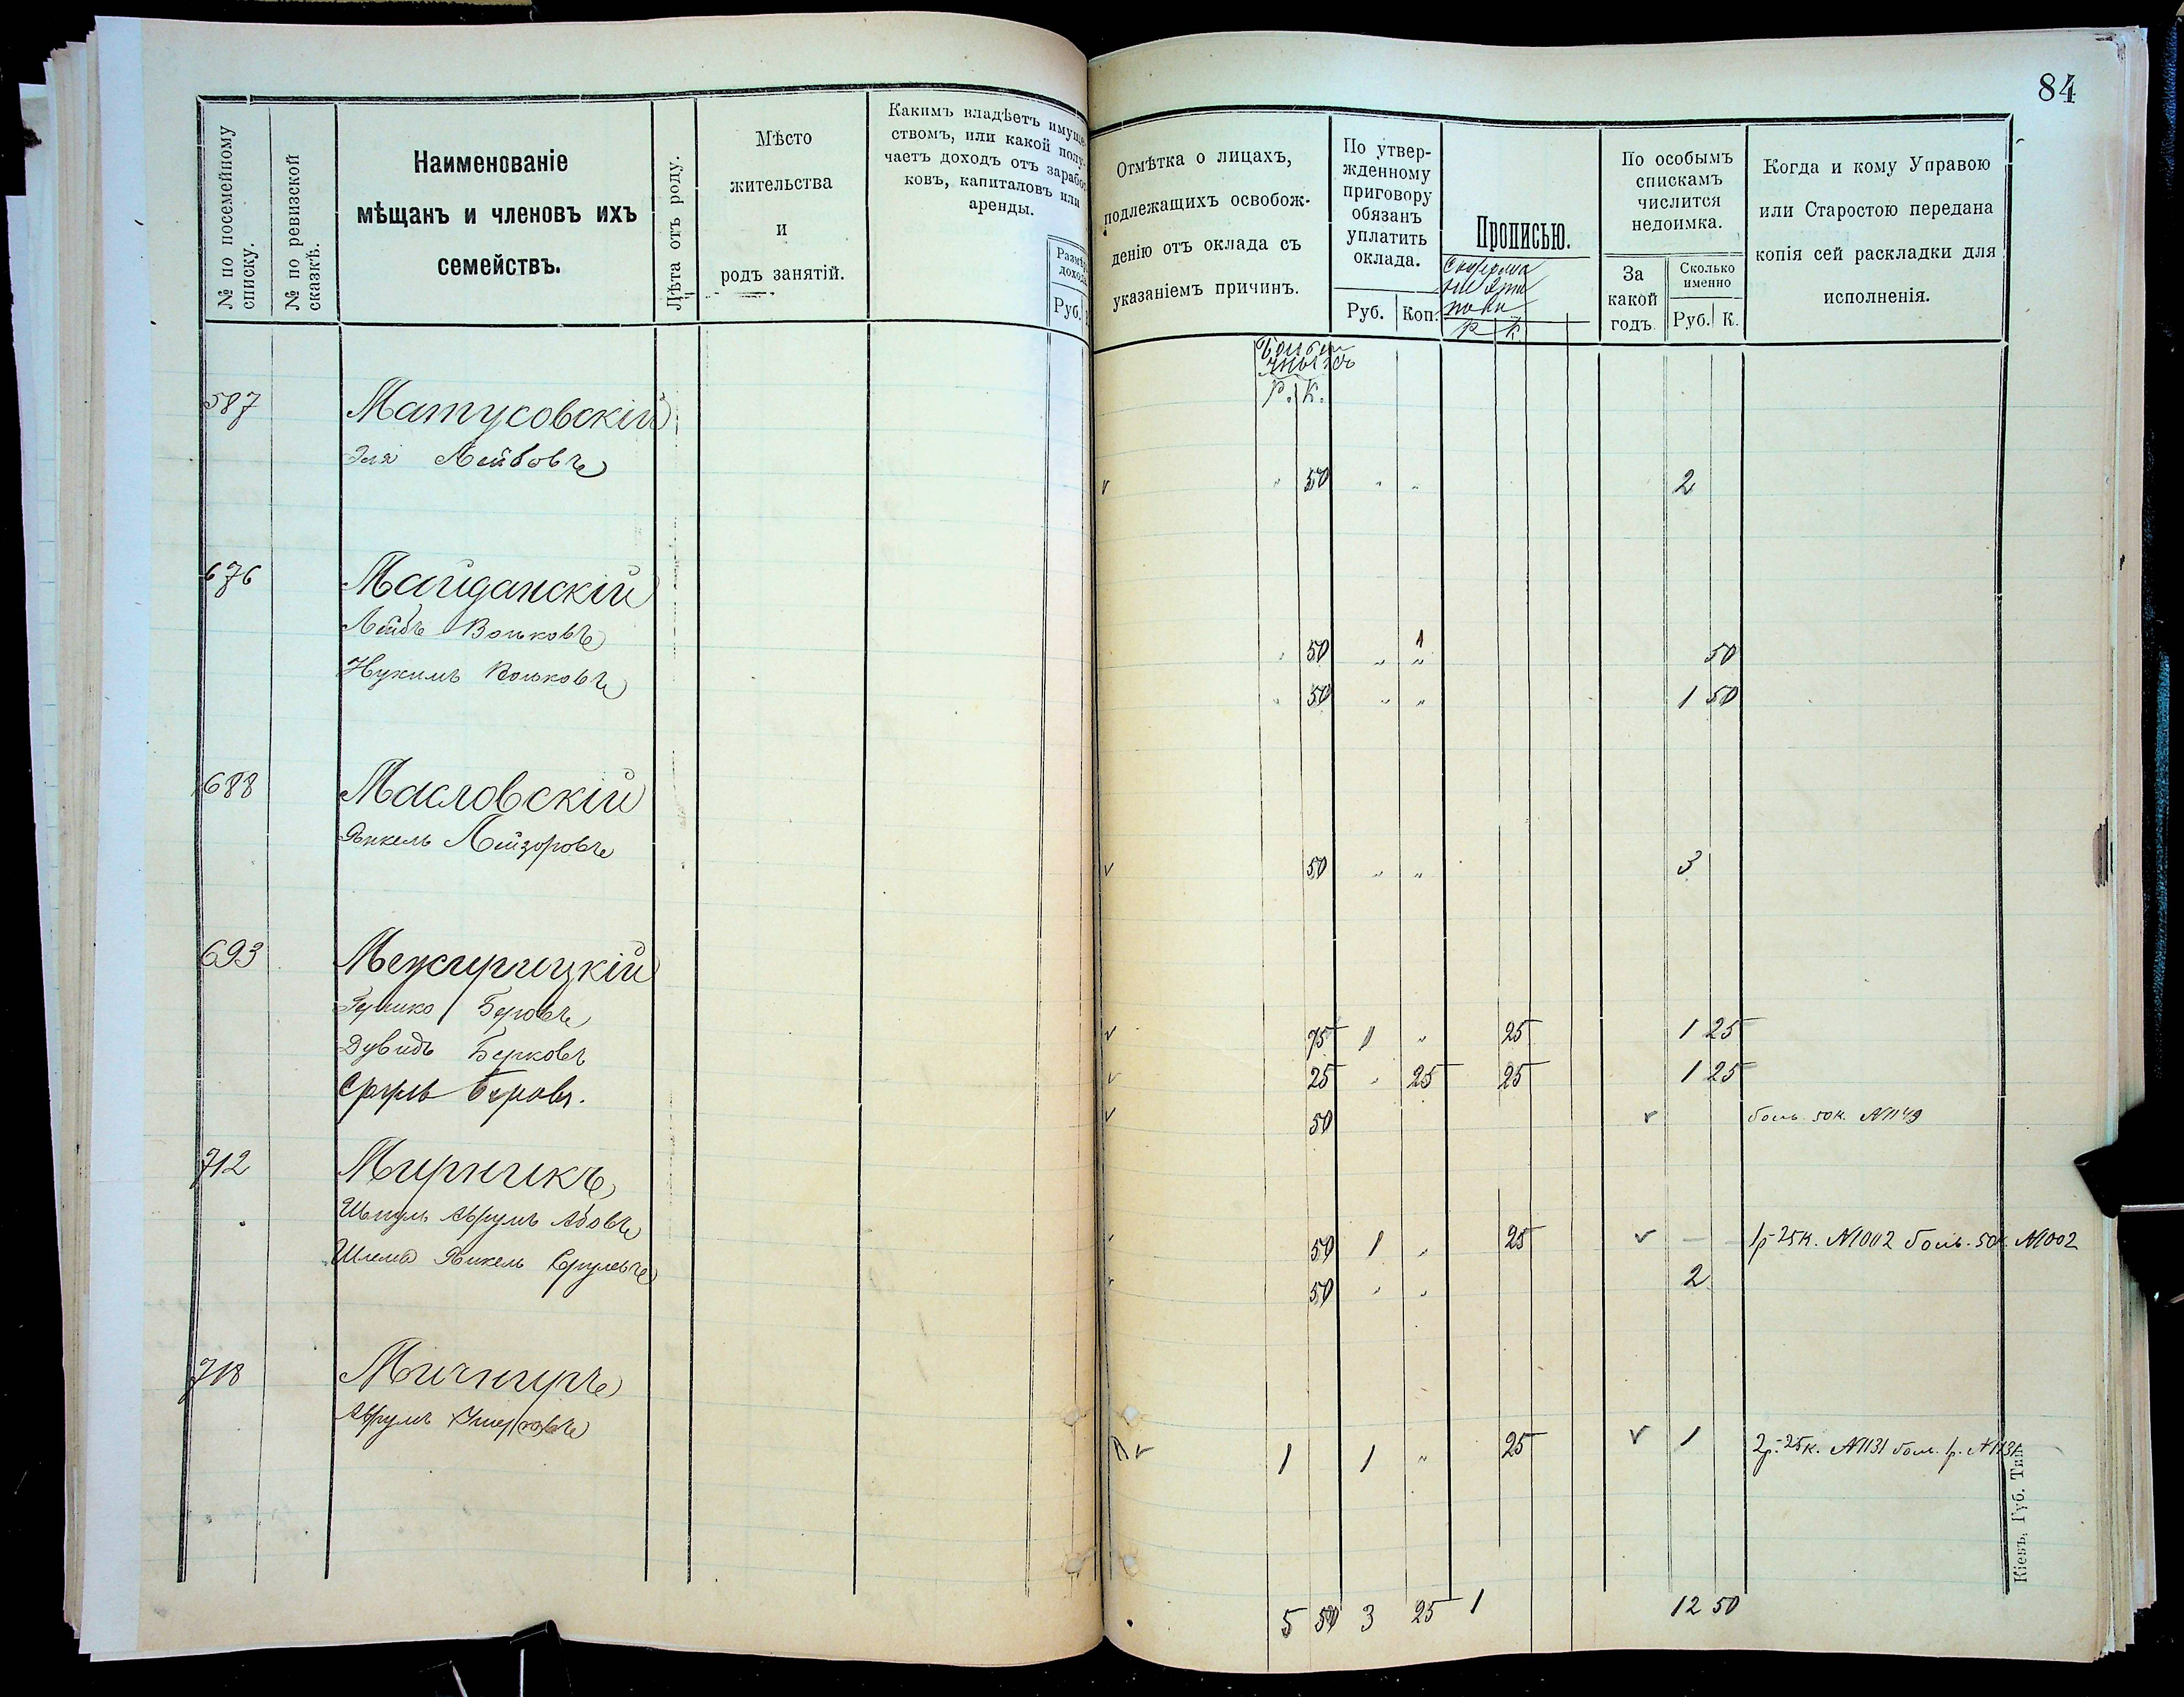 84
№ по посемейному списку.
№ по ревизской сказкѣ.
Наименованіе
мѣщанъ и членовъ ихъ
семействъ.
Лѣта отъ роду.
Мѣсто
жительства
и
родъ занятій.
Какимъ владѣетъ имуще-
ствомъ, или какой полу-
чаетъ доходъ отъ заработ-
ковъ, капиталовъ или
аренды.
Размѣръ
дохода
Руб.
Отмѣтка о лицахъ,
подлежащихъ освобож-
денію отъ оклада съ
указаніемъ причинъ.
По утвер-
жденному
приговору
обязанъ
уплатить
оклада.
Руб. Коп.
Прописью.
Р К.
По особымъ
спискамъ
числится
недоимка.
За
какой
годъ
Сколько
именно
Руб. К.
Когда и кому Управою
или Старостою передана
копія сей раскладки для
исполненія.
Р. К.
587 Матусовскій
Эля Лейбовъ " 50 " " 2
676 Майданскій
Лейбъ Вольковъ " 50 " 1 " 50
Нухимъ Вольковъ " 50 " " 1 50
688 Масловскій
Янкель Лейзоровъ 50 " " 3
693 Межирицкій
Гершко Беровъ 75 1 " 25 1 25
Дувидъ Берковъ 25 " 25 25 1 25
Сруль Беровъ. 50 боль. 50 к. №1149
712 Мирникъ
Аврумъ Абовъ 50 1 " 25 — 1р 25к. №1002 боль. 50к. №1002
Шлема Янкель Срулевъ 50 " " 2
718 Мичникъ
Аврумъ 1 1 " 25 1 2р. 25к. №1131 боль. 1р. №1131
5 50 3 25 1 12 50
Кіевъ, Губ. Тип.